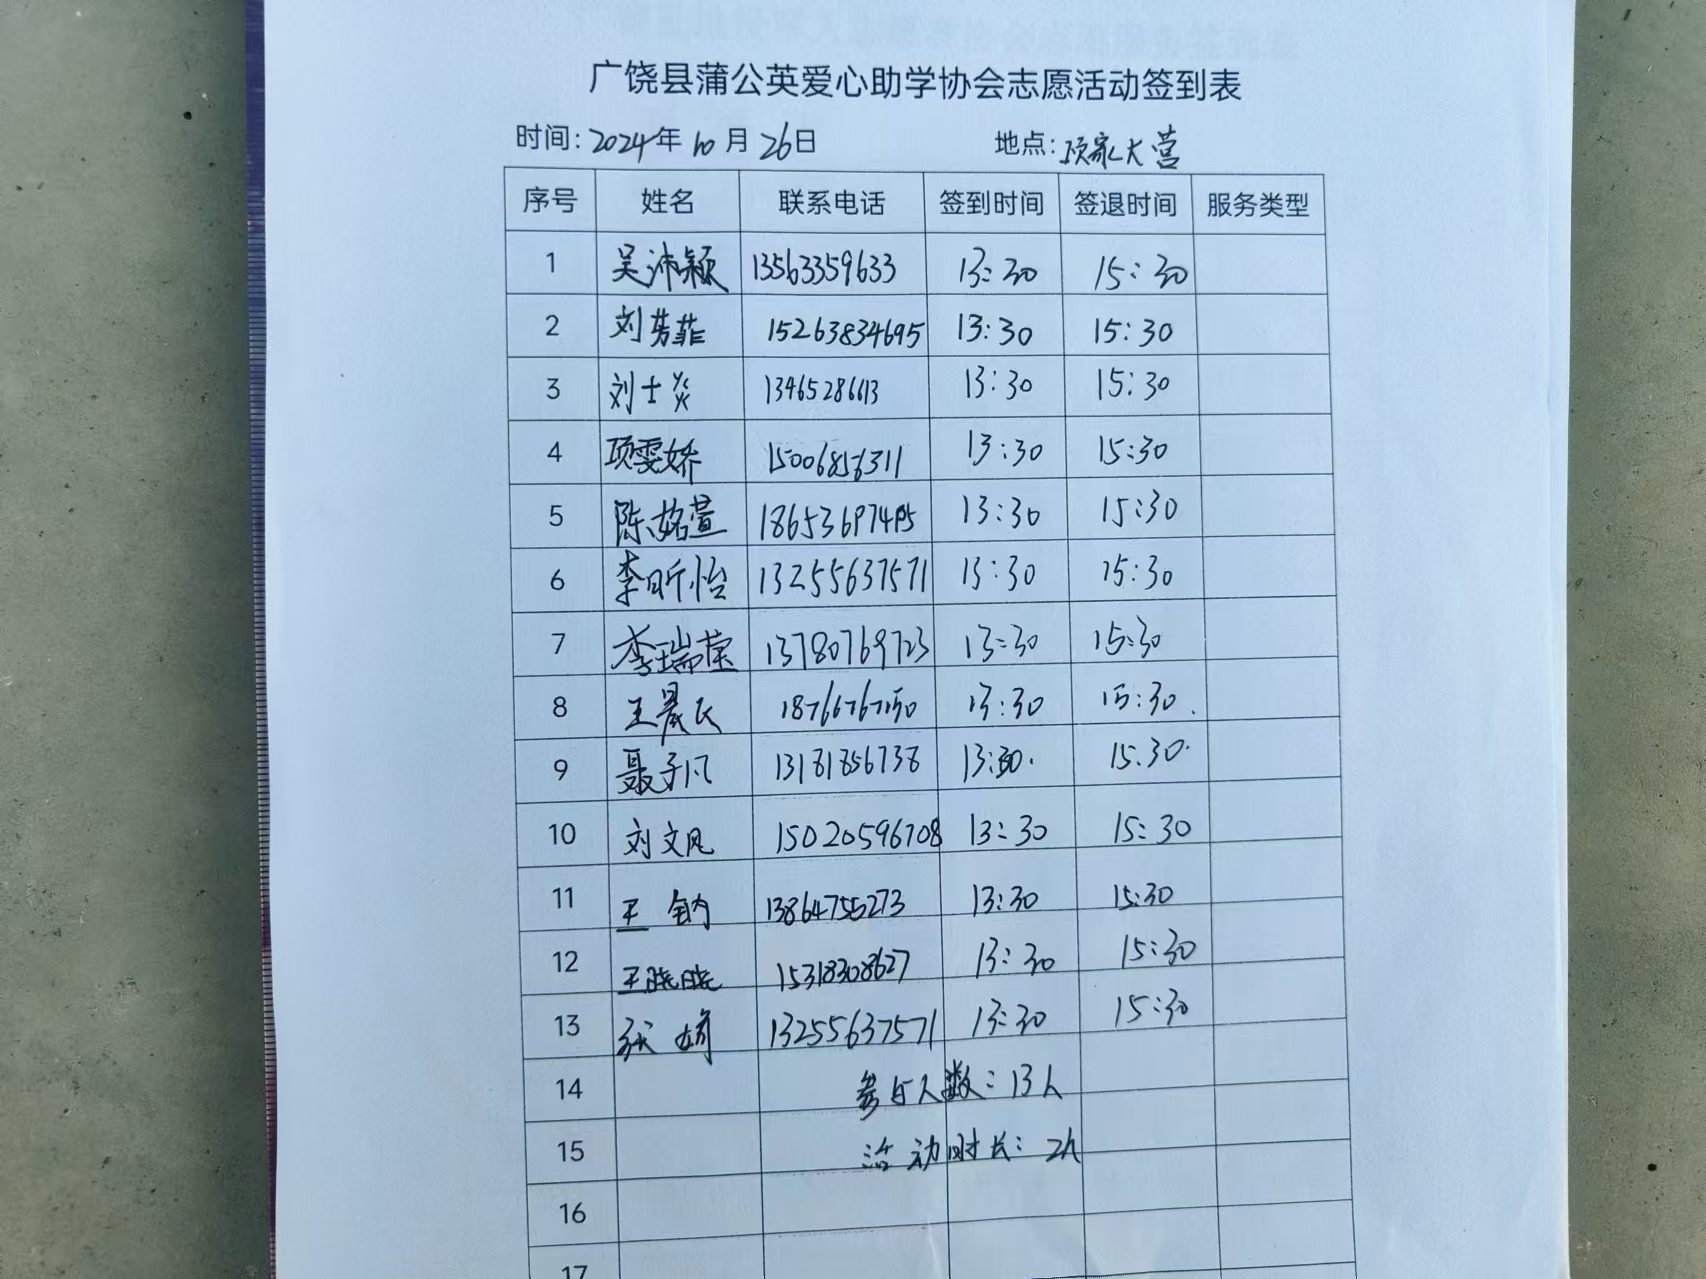 广饶县蒲公英爱心助学协会志愿活动签到表
时间: 2024年10月26日 地点: 项家大营
序号 姓名 联系电话 签到时间 签退时间 服务类型
1 吴沛颖 13563359633 13:30 15:30
2 刘芳菲 15263834695 13:30 15:30
3 刘士炎 13465286613 13:30 15:30
4 项雯娇 15006856311 13:30 15:30
5 陈婼萱 13:30 15:30
6 李昕怡 13255637571 13:30 15:30
7 李瑞莹 13780769723 13:30 15:30
8 王晨 13:30 15:30.
9 聂子凡 13181856738 13:30. 15.30.
10 刘文凤 15020596708 13:30 15:30
11 王 钧 13864755273 13:30 15:30
12 王晓晓 15318308627 13:30 15:30
13 张 婷 13255637571 13:30 15:30
14 参与人数: 13人
15 活动时长: 2h
16
17